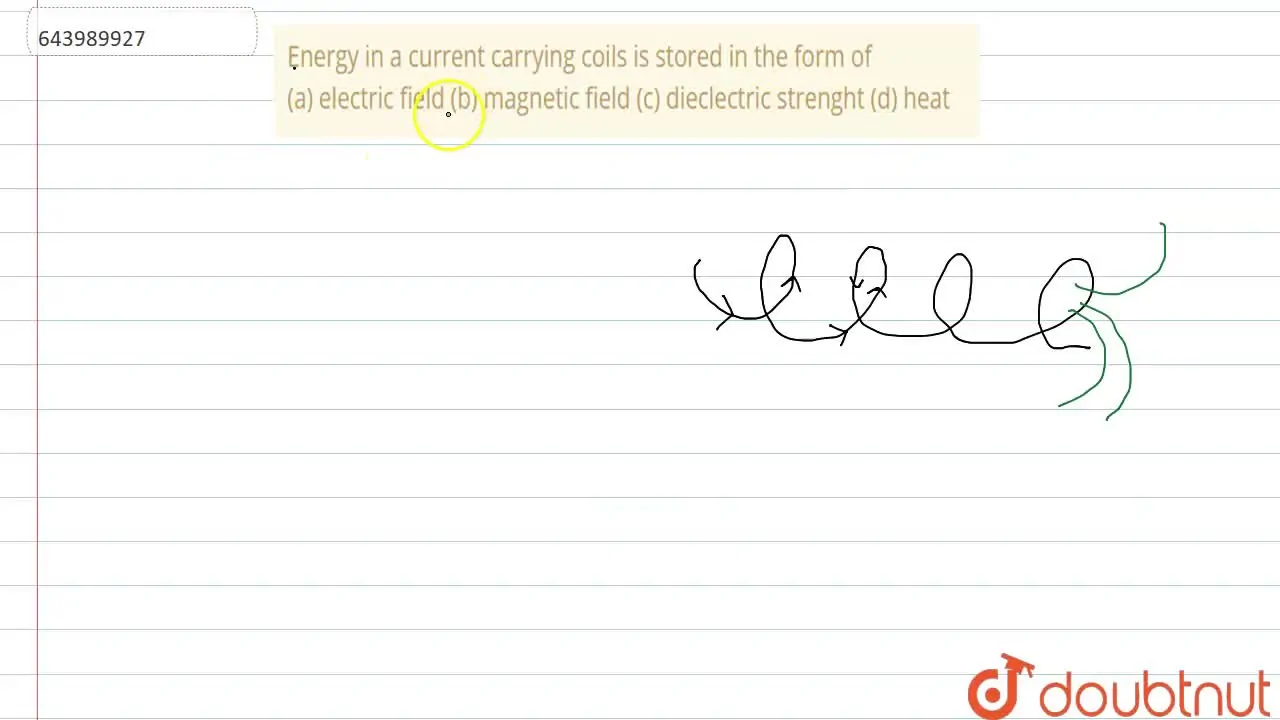 643989927
Energy in a current carrying coils is stored in the form of
(a) electric field (b) magnetic field (c) dieclectric strenght (d) heat
doubtnut